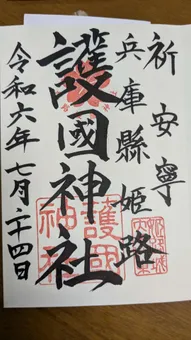 祈安寧
兵庫縣姫路
護國神社
令和六年七月二十四日
護國
神社